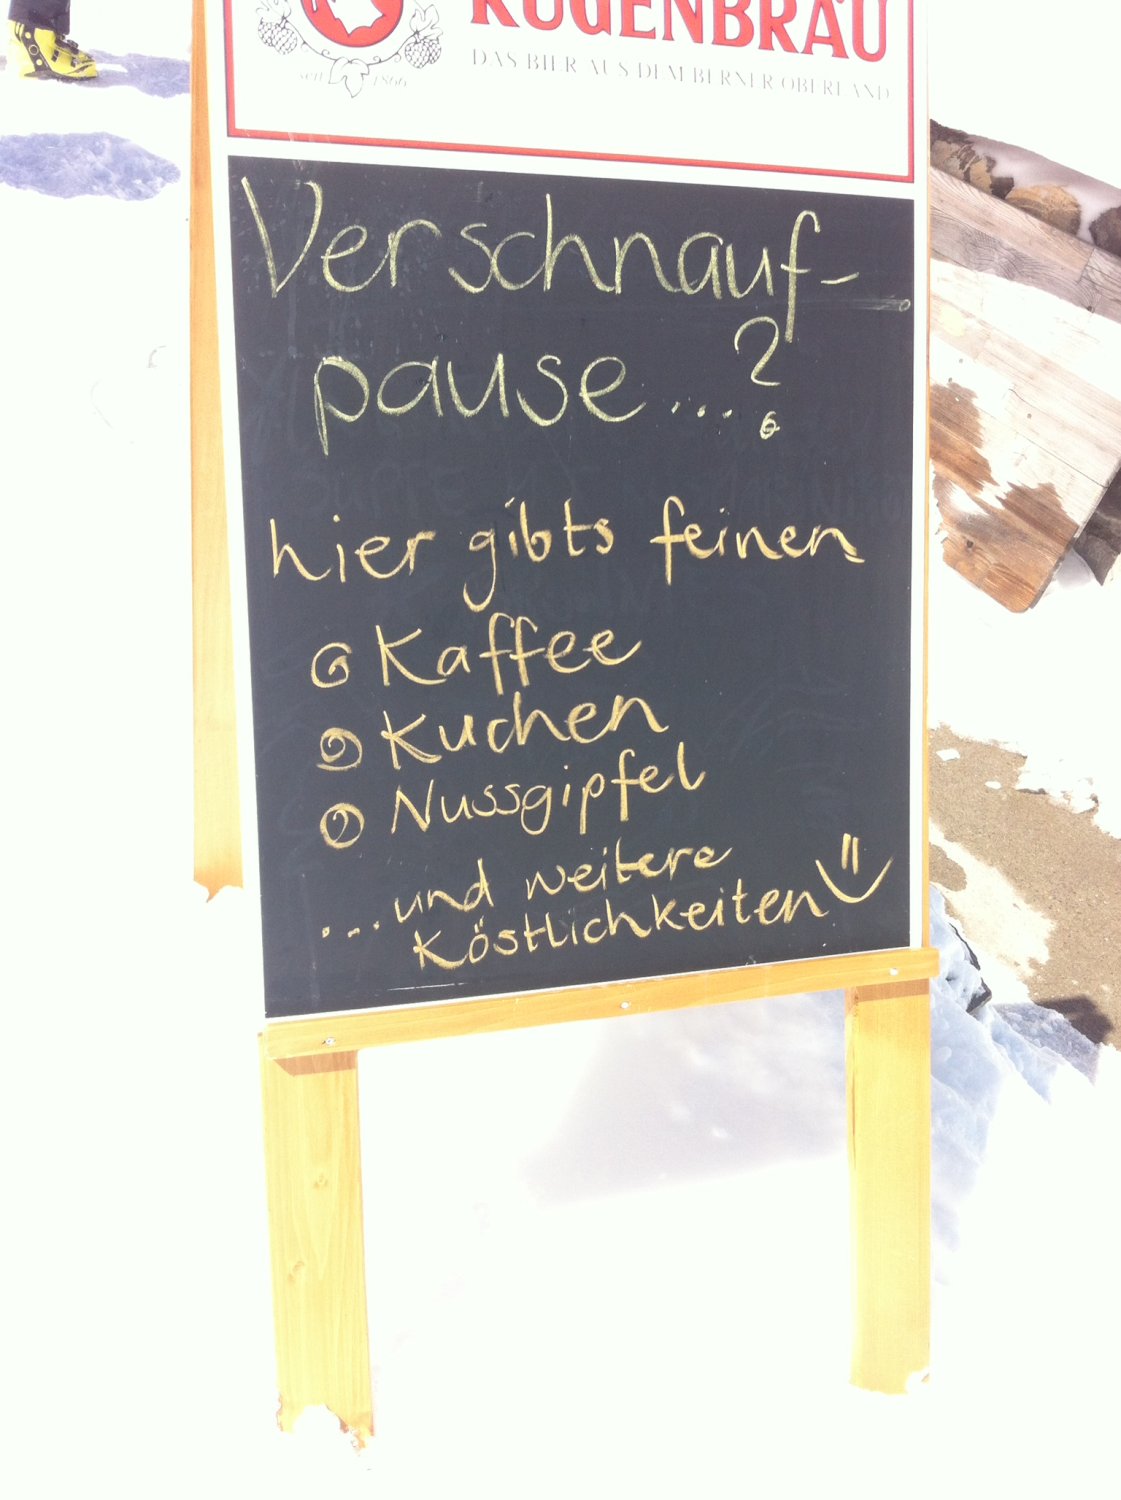 RUGENBRÄU
DAS BIER AUS DEM BERNER OBERLAND
seit 1866
Verschnauf-
pause....?
hier gibts feinen
Kaffee
Kuchen
Nussgipfel
...und weitere
Köstlichkeiten